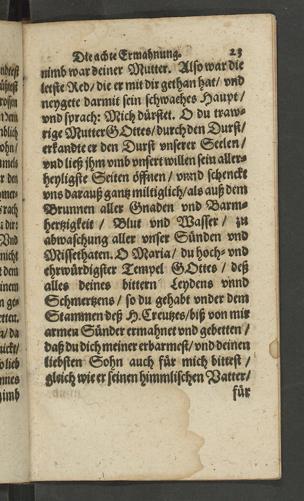 Die achte Ermahnung. 23
nimb war deiner Mutter. Also war die
letste Red/ die er mit dir gethan hat/ vnd
neygete darmit sein schwaches Haupt/
vnd sprach: Mich dürstet. O du traw-
rige Mutter GOttes/ durch den Durst/
erkandte er den Durst vnserer Seelen/
vnd ließ jhm vmb vnsert willen sein aller-
heyligste Seiten öffnen/ vnnd schenckt
vns darauß gantz miltiglich/ als auß dem
Brunnen aller Gnaden vnd Barm-
hertzigkeit/ Blut vnd Wasser/ zu
abwaschung aller vnser Sünden vnd
Missethaten. O Maria/ du hoch- vnd
ehrwürdigster Tempel GOttes/ deß
alles deines bittern Leydens vnnd
Schmertzens/ so du gehabt vnder dem
Stammen deß H. Creutzes/ biß von mir
armen Sünder ermahnet vnd gebetten/
daß du dich meiner erbarmest/ vnd deinen
liebsten Sohn auch für mich bittest/
gleich wie er seinen himmlischen Vatter/
für